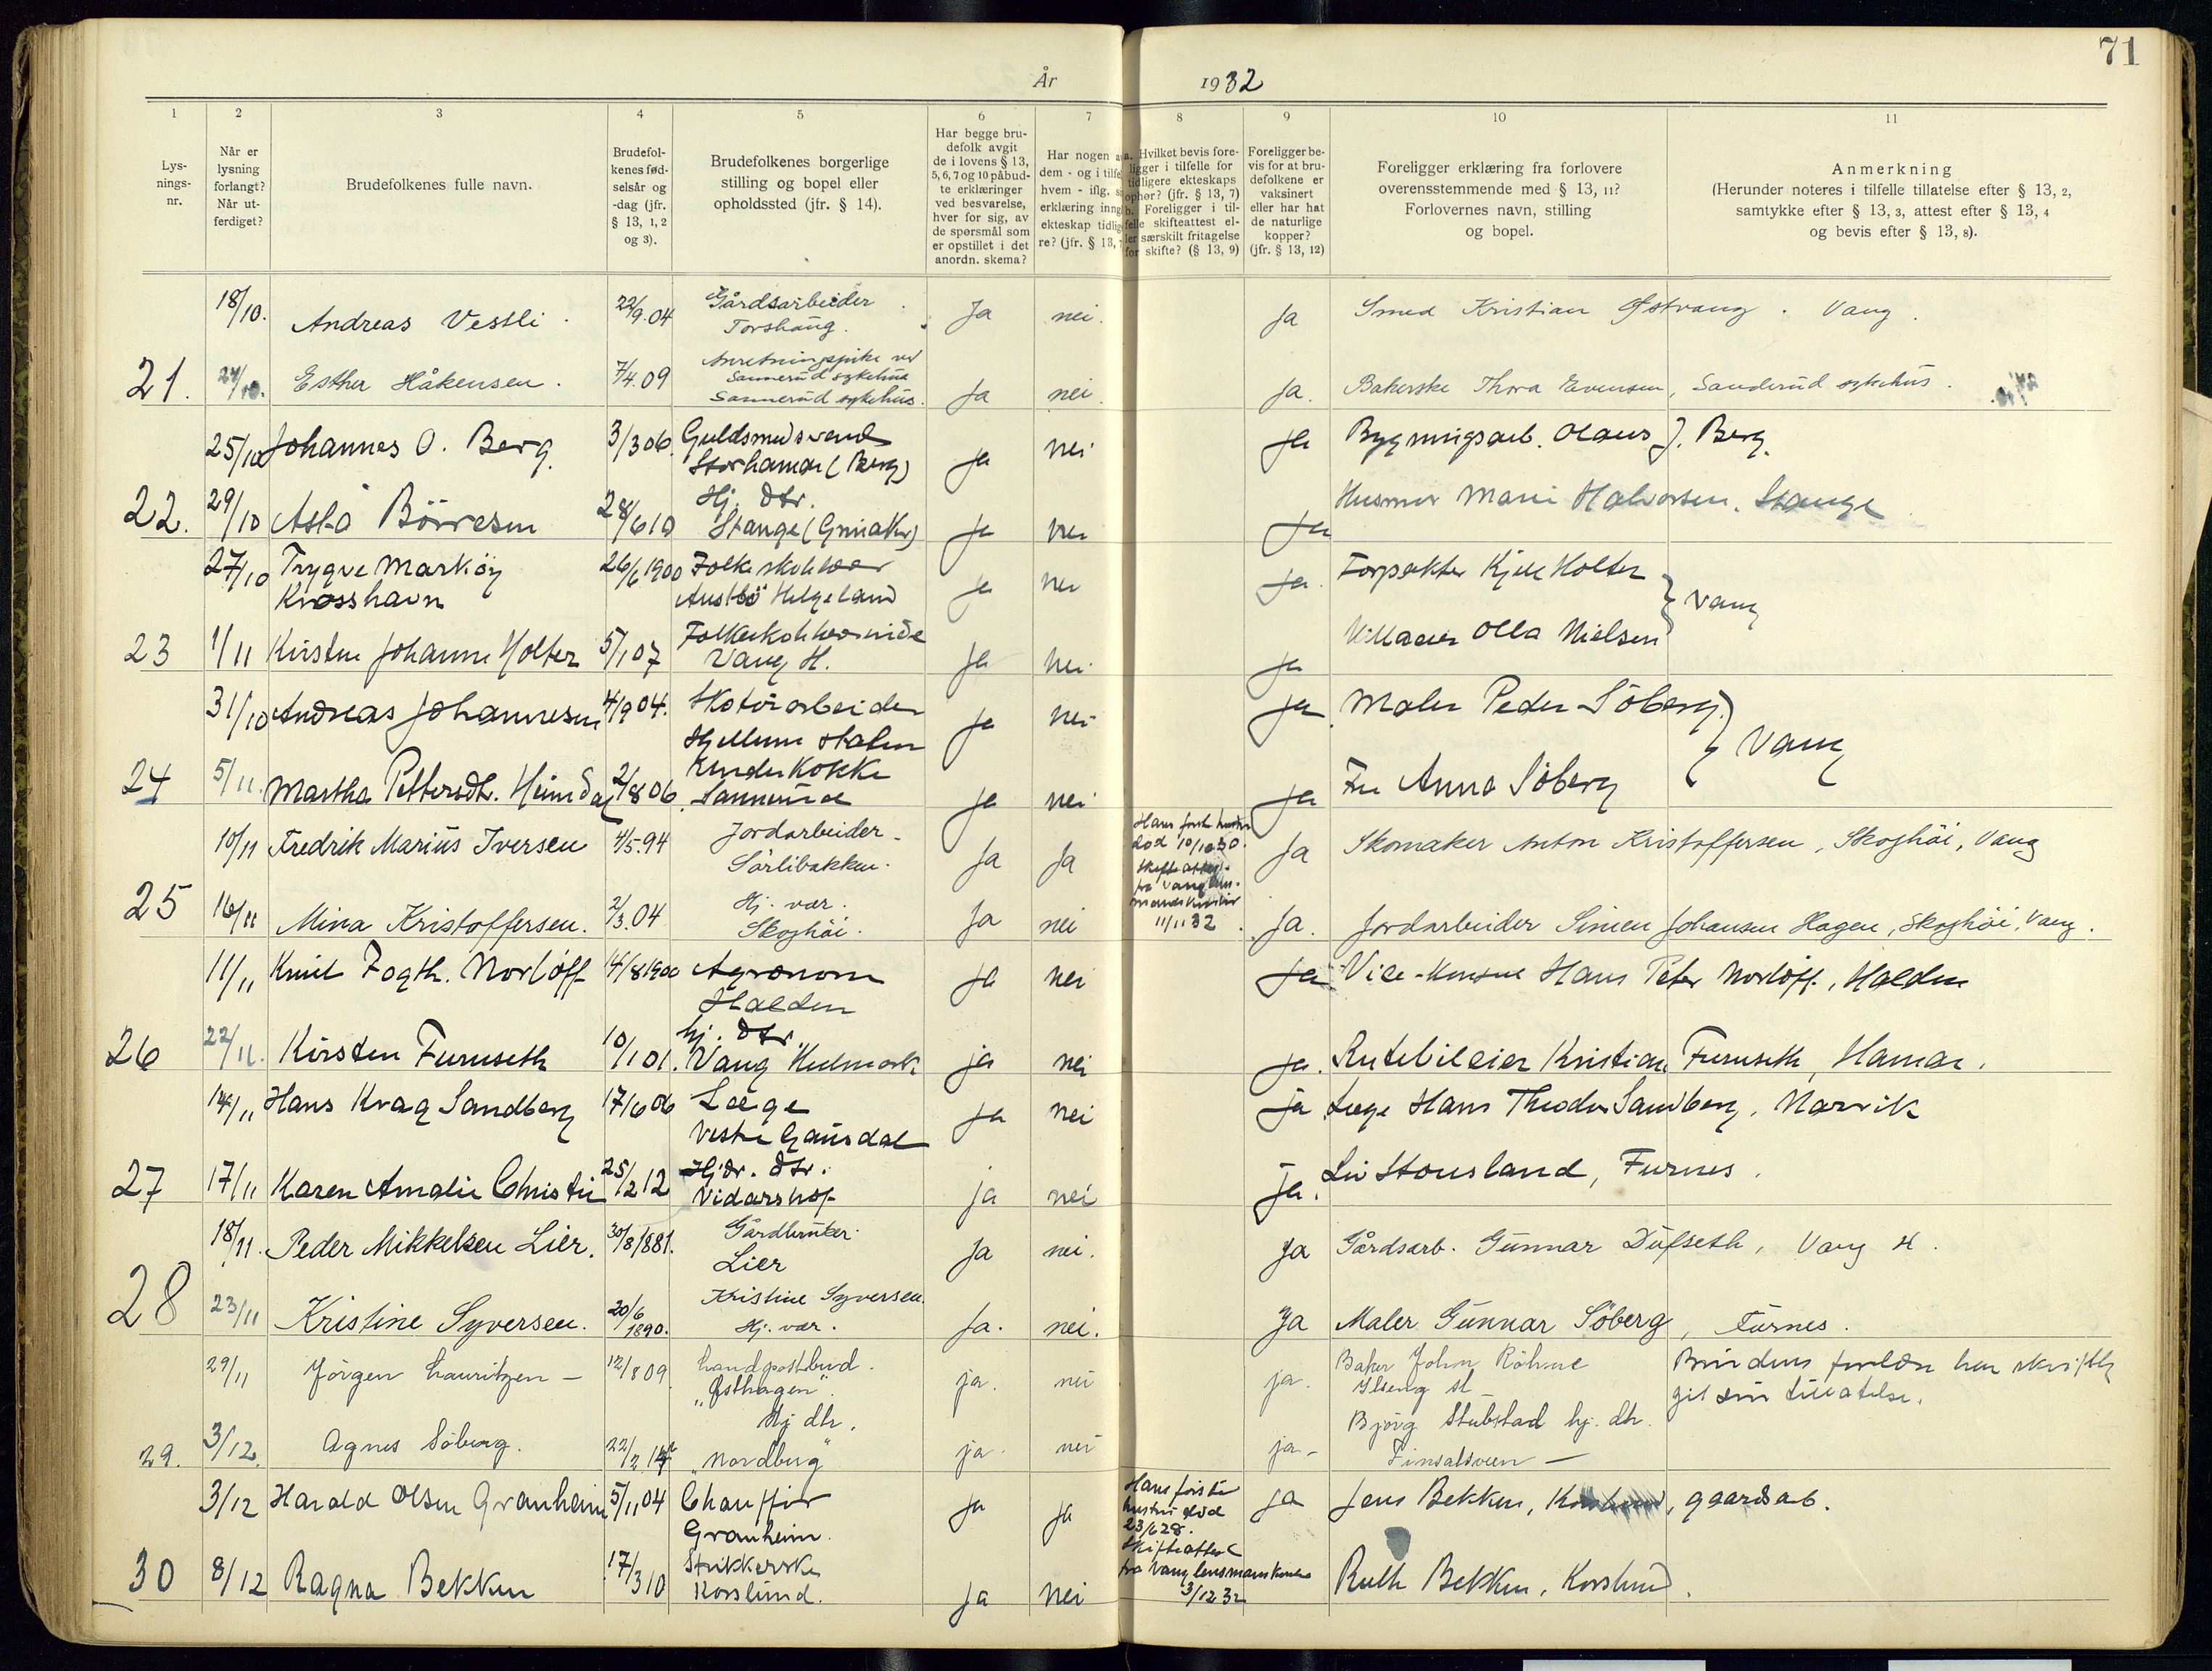 71
År 1932
1 2 3 4 5 6 7 8 9 10 11
Lys-
nings-
nr.
Når er
lysning
forlangt?
Når ut-
ferdiget?
Brudefolkenes fulle navn.
Brudefol-
kenes fød-
selsår og
-dag (jfr.
§ 13, 1, 2
og 3).
Brudefolkenes borgerlige
stilling og bopel eller
opholdssted (jfr. § 14).
Har begge bru-
defolk avgit
de i lovens § 13,
5, 6, 7 og 10 påbud-
te erklæringer
ved besvarelse,
hver for sig, av
de spørsmål som
er opstillet i det
anordn. skema?
Har nogen a
dem - og i tilfe
hvem - iflg. s
erklæring inng
ekteskap tidlig
re? (jfr. § 13,
a. Hvilket bevis fore-
ligger i tilfelle for
tidligere ekteskaps
ophør? (jfr. § 13, 7)
b. Foreligger i til-
felle skifteattest el-
ler særskilt fritagelse
for skifte? (§ 13, 9)
Foreligger be-
vis for at bru-
defolkene er
vaksinert
eller har hat
de naturlige
kopper?
(jfr. § 13, 12)
Foreligger erklæring fra forlovere
overensstemmende med § 13, 11?
Forlovernes navn, stilling
og bopel.
Anmerkning
(Herunder noteres i tilfelle tillatelse efter § 13, 2,
samtykke efter § 13, 3, attest efter § 13, 4
og bevis efter § 13, 8).
18/10. Andreas Vestli. 22/9.04 Gårdsarbeider Torshaug. Ja nei. Ja Smed Kristian Østvang. Vang.
21. 24/10. Esther Håkensen. 7/4.09 Anretningspike ved Sannerud sykehus Sannerud sykehus. Ja nei. Ja. Bakerske Thora Evensen, Sanderud sykehus.
25/10 Johannes O. Berg. 3/3 06. Guldsmedsvend Storhamar (Berg) Ja nei Ja Bygningsarb. Olaus J. Berg.
22. 29/10 Asta Börresen 28/6 10 Hj. dtr. Stange Ja nei Ja Husmor Marie Halvorsen. Stange
27/10 Trygve Marköy Krosshavn 26/6 1900 Folkeskolelærer Austbö Helgeland Ja nei Ja. Forpakter Kjell Holter } Vang
23 1/11 Kirsten Johanne Holter 5/1 07 Folkeskolelærerinde Vang H. Ja nei Ja Villaeier Olla Nielsen
31/10 Andreas Johannesen 4/9 04. Skotöiarbeider Hjellum station Ja nei Ja Maler Peder Söberg } Vang
24 5/11. Martha Pettersdt. Heimdal 2/8 06. Underkokke Sannerud Ja nei Ja Fru Anna Söberg
10/11 Fredrik Marius Iversen 4/5.94 Jordarbeider. Sörlibakken. Ja Ja Hans første hustru död 10/10 30. Skifteattest fra Vang lens- 11/11 32 Ja Skomaker Anton Kristoffersen, Skoghöi, Vang
25 16/11 Mina Kristoffersen. 2/3.04 Hj. vær. Skoghöi. Ja nei Ja. Jordarbeider Simen Johansen Hagen, Skoghöi, Vang.
11/11 Knut Fogth. Norløff 14/8 1900 Agronom Halden Ja nei Ja Vice-konsul Hans Peter Norløff, Halden
26 22/11. Kirsten Furuseth 10/1 01. hj. dtr. Vang Hedmark ja nei Ja. Rutebileier Kristian Furuseth, Hamar.
14/11 Hans Krag Sandberg 17/6 06 Læge Vestre Gausdal Ja nei ja Læge Hans Theodor Sandberg, Narvik
27 17/11 Karen Amalie Christie 25/2 12 Hj. dtr. Vidarshof ja nei ja. Liv Stousland, Furnes.
18/11. Peder Mikkelsen Lier. 30/8 1881. Gårdbruker. Lier Ja nei. Ja Gårdsarb. Gunnar Dufseth, Vang H.
28 23/11 Kristine Syversen. 20/6 1890. Kristine Syversen. Hj. vær. Ja. nei. Ja Maler Gunnar Söberg, Furnes.
29/11 Jörgen Lauritzen — 12/8 09 Landpostbud. "Østhagen". ja. nei ja. Baker John Röhne Ilseng st. Brudens foreldre har skriftlig git sin tillatelse.
29. 3/12. Agnes Söberg. 22/2 14 Hj dtr. "Nordberg" ja. nei ja - Björg Stubstad hj. dtr. Finsalsveen —
3/12 Harald Olsen Granheim 5/11 04 Chauffør Granheim. Ja Ja Hans første hustru död 23/6 28. Skifteattest fra Vang lensmanskontor 3/12 32 ja Jens Bekken, gaardsarb.
30 8/12 Ragna Bekken 17/3 10 Strikkerske Korslund. Ja nei Ruth Bekken, Korslund.